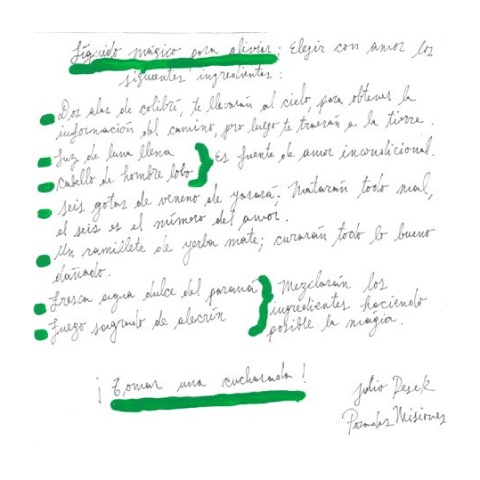 Líquido mágico para aliviar; Elegir con amor los
siguientes ingredientes:
Dos alas de colibrí, te llevarán al cielo, para obtener la
información del camino, pro luego te traerán a la tierra.
Luz de luna llena
Cabello de hombre lobo } Es fuente de amor incondicional.
Seis gotas de veneno de yarará; Matarán todo mal,
el seis es el número del amor.
Un ramillete de yerba mate; curarán todo lo bueno
dañado.
Fresca agua dulce del paraná
Fuego sagrado de alecrín
} Mezclarán los
ingredientes haciendo
posible la magia.
¡Tomar una cucharada!
Julio
Posadas Misiones